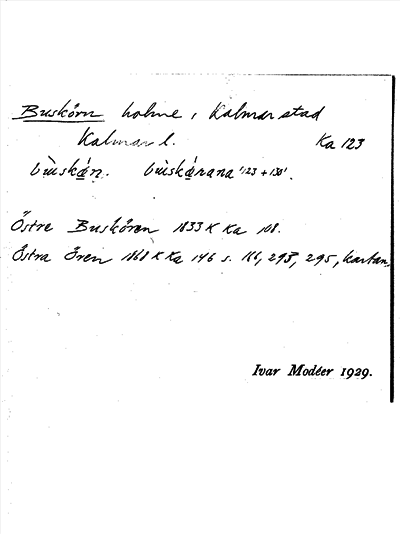 Buskörn holme i Kalmar stad
Kalmar l. Ka 123
bùskán. bùskárana '123 + 130'.
Östre Buskören 1833 K Ka 108.
Östra Ören 1868 K Ka 146 s. 166, 293, 295, kartan.
Ivar Modéer 1929.